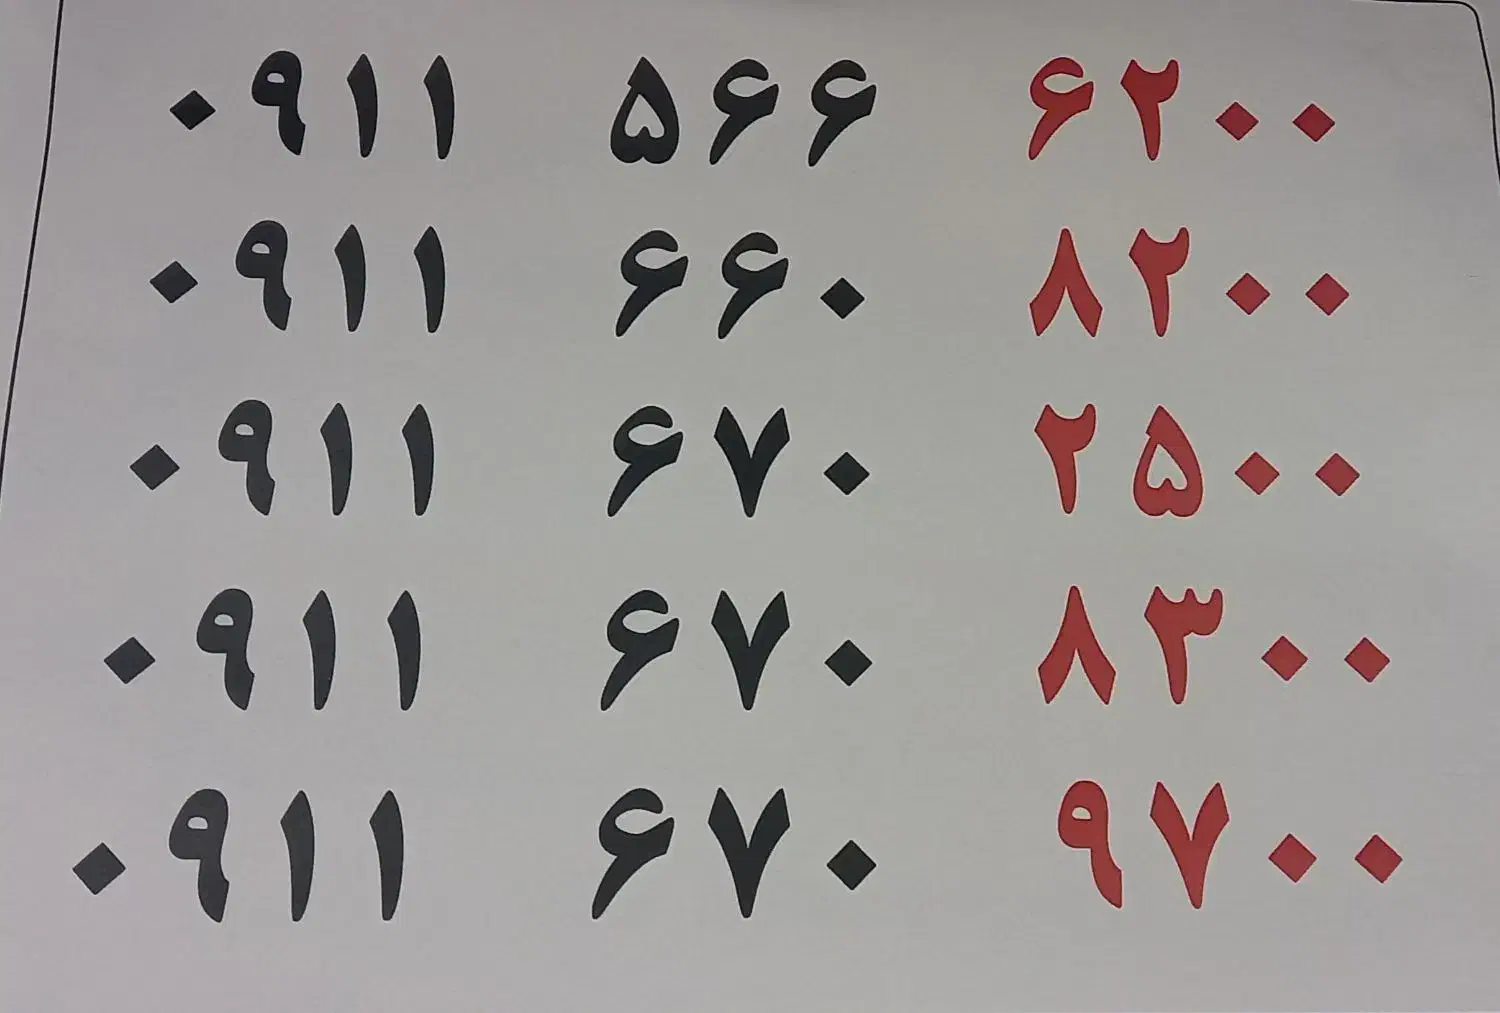 ۰۹۱۱ ۵۶۶ ۶۲۰۰
۰۹۱۱ ۶۶۰ ۸۲۰۰
۰۹۱۱ ۶۷۰ ۲۵۰۰
۰۹۱۱ ۶۷۰ ۸۳۰۰
۰۹۱۱ ۶۷۰ ۹۷۰۰